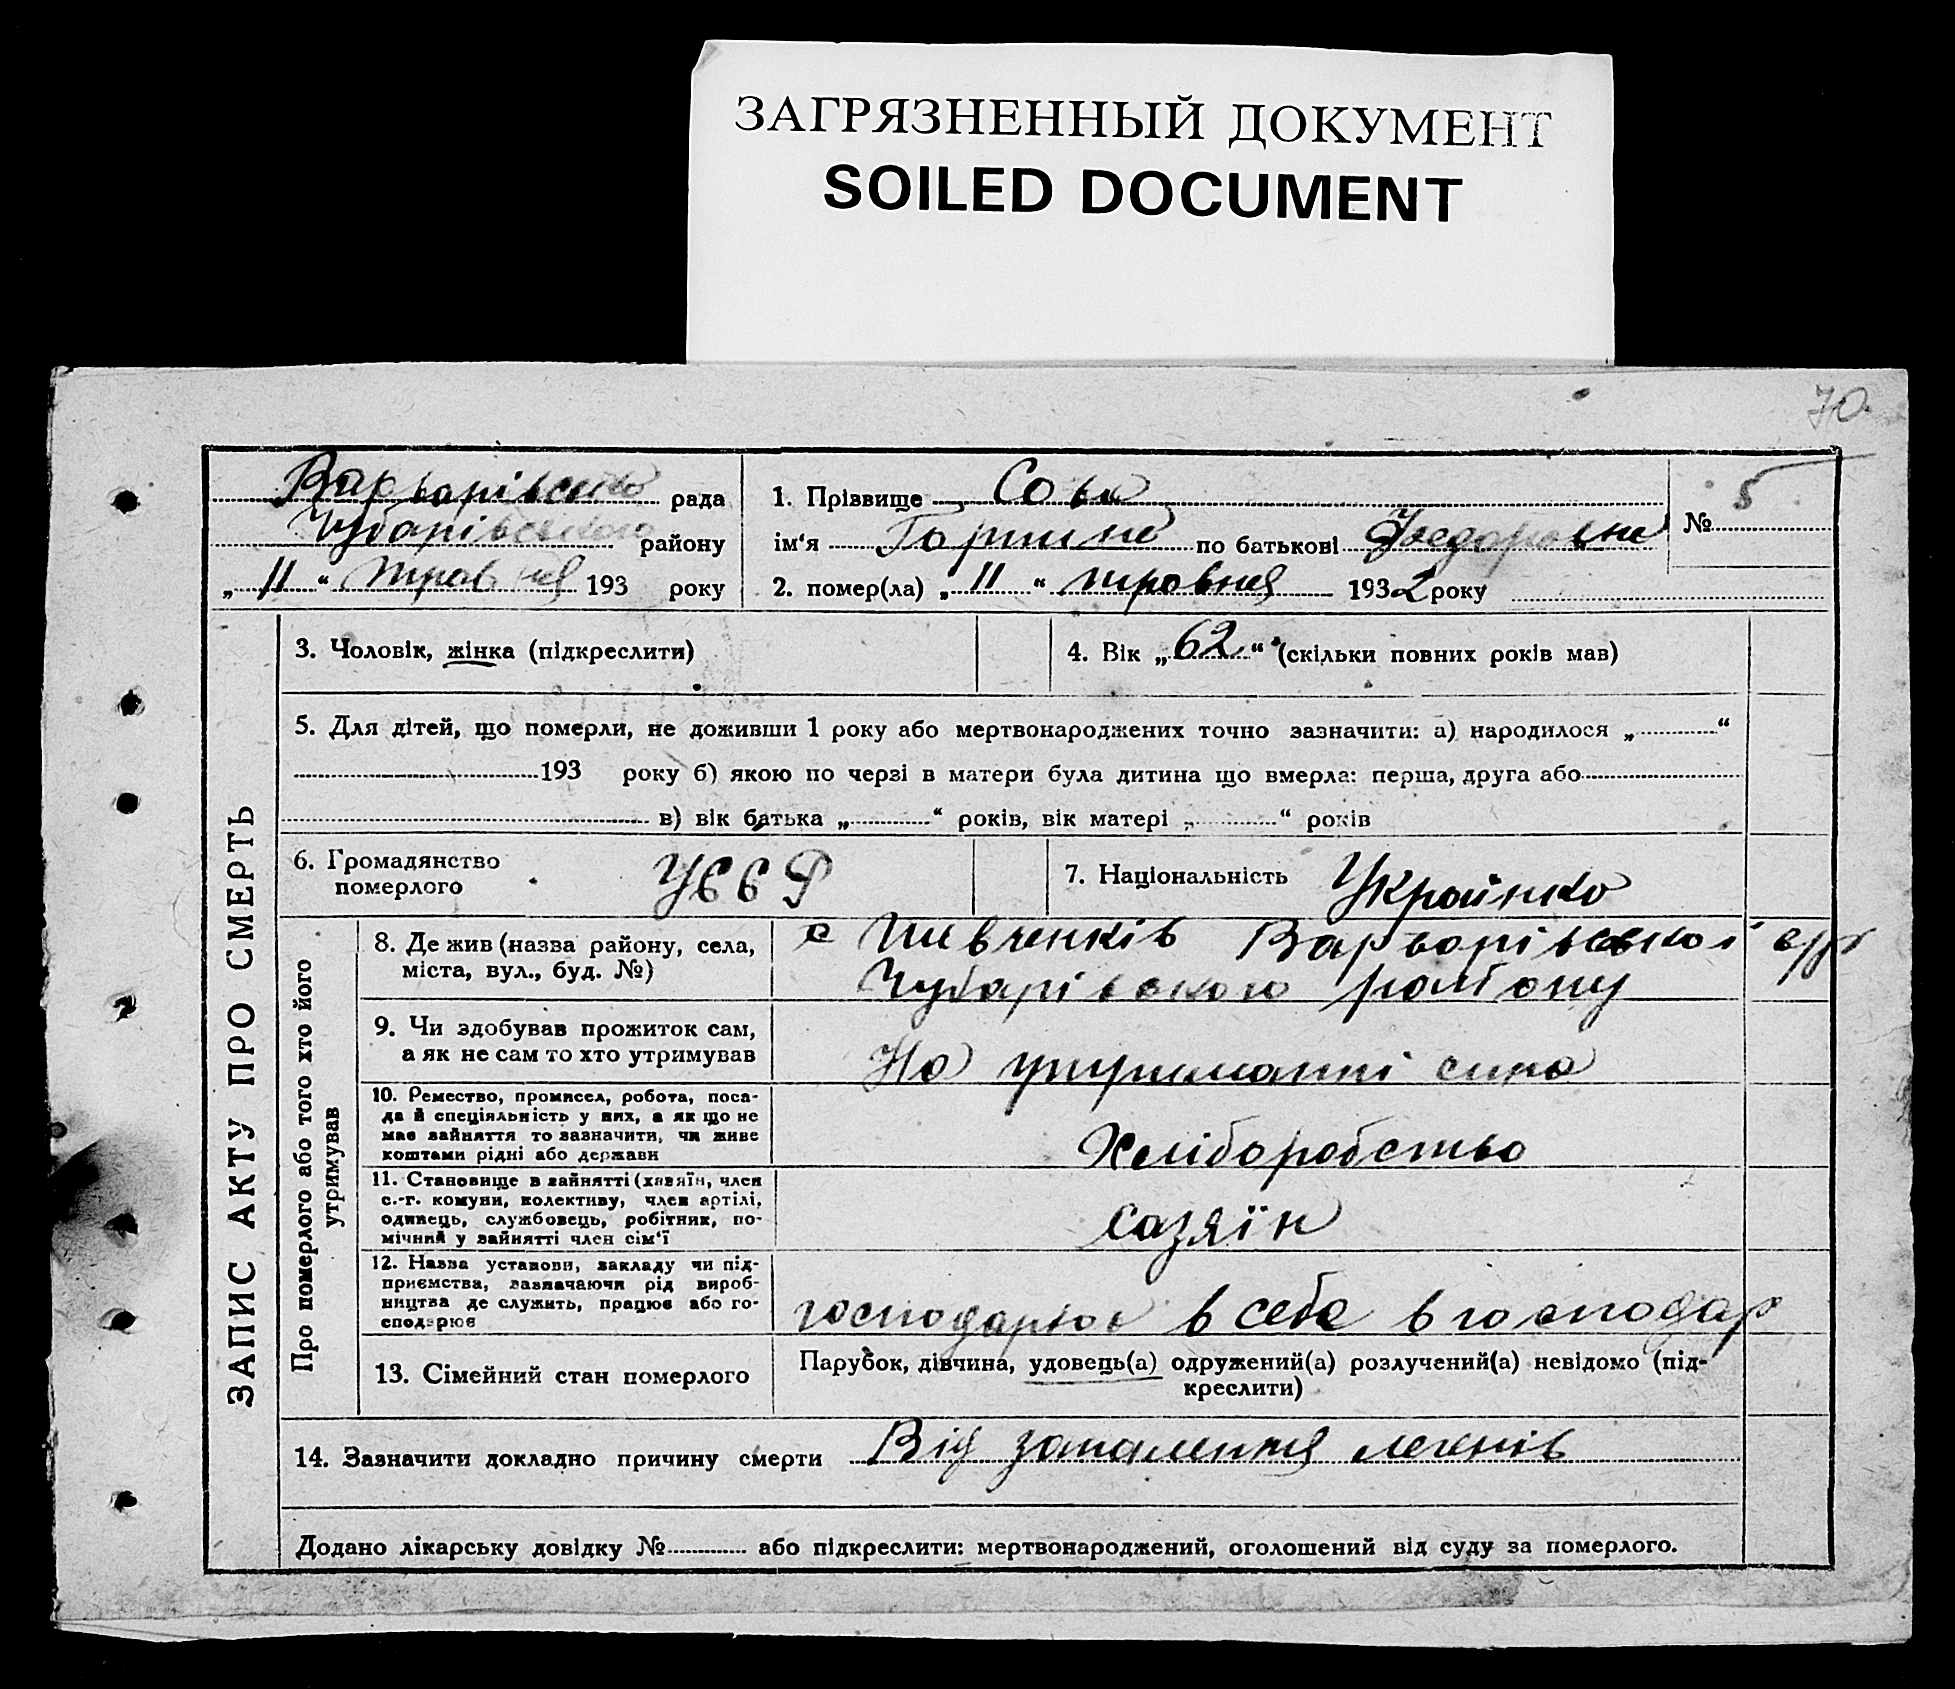 ЗАГРЯЗНЕННЫЙ ДОКУМЕНТ
SOILED DOCUMENT
70
Варварівська рада
Чубарівського району
„11“ травня 193 року
1. Прізвище Сова
ім‘я по батькові Феодоровна
2. помер(ла) „11“ травня 1932 року
№ 5
ЗАПИС АКТУ ПРО СМЕРТЬ
3. Чоловік, жінка (підкреслити)
4. Вік „62“ (скільки повних років мав)
5. Для дітей, що померли, не доживши 1 року або мертвонароджених точно зазначити: а) народилося „ “
193 року б) якою по черзі в матери була дитина що вмерла: перша, друга або
в) вік батька „ “ років, вік матері „ “ років
6. Громадянство
померлого
УССР
7. Національність Українка
Про померлого або того хто його
утримував
8. Де жив (назва району, села,
міста, вул., буд. №)
с Шевченків Варварівської с/р
Чубарівського району
9. Чи здобував прожиток сам,
а як не сам то хто утримував
На утриманні сина
10. Ремество, промисел, робота, поса-
да й спеціяльність у них, а як що не
має зайняття то зазначити, чи живе
коштами рідні або держави
Хліборобство
11. Становище в зайнятті (хазяїн, член
с.-г. комуни, колективу, член артілі,
одинець, службовець, робітник, по-
мічний у зайнятті член сім‘ї
хазяїн
12. Назва установи, закладу чи під-
приємства, зазначаючи рід вироб-
ництва де служить, працює або го-
сподарює
господарює в себе в господар
13. Сімейний стан померлого
Парубок, дівчина, удовець(а) одружений(а) розлучений(а) невідомо (під-
креслити)
14. Зазначити докладно причину смерти Від запалення легенів
Додано лікарську довідку № або підкреслити: мертвонароджений, оголошений від суду за померлого.